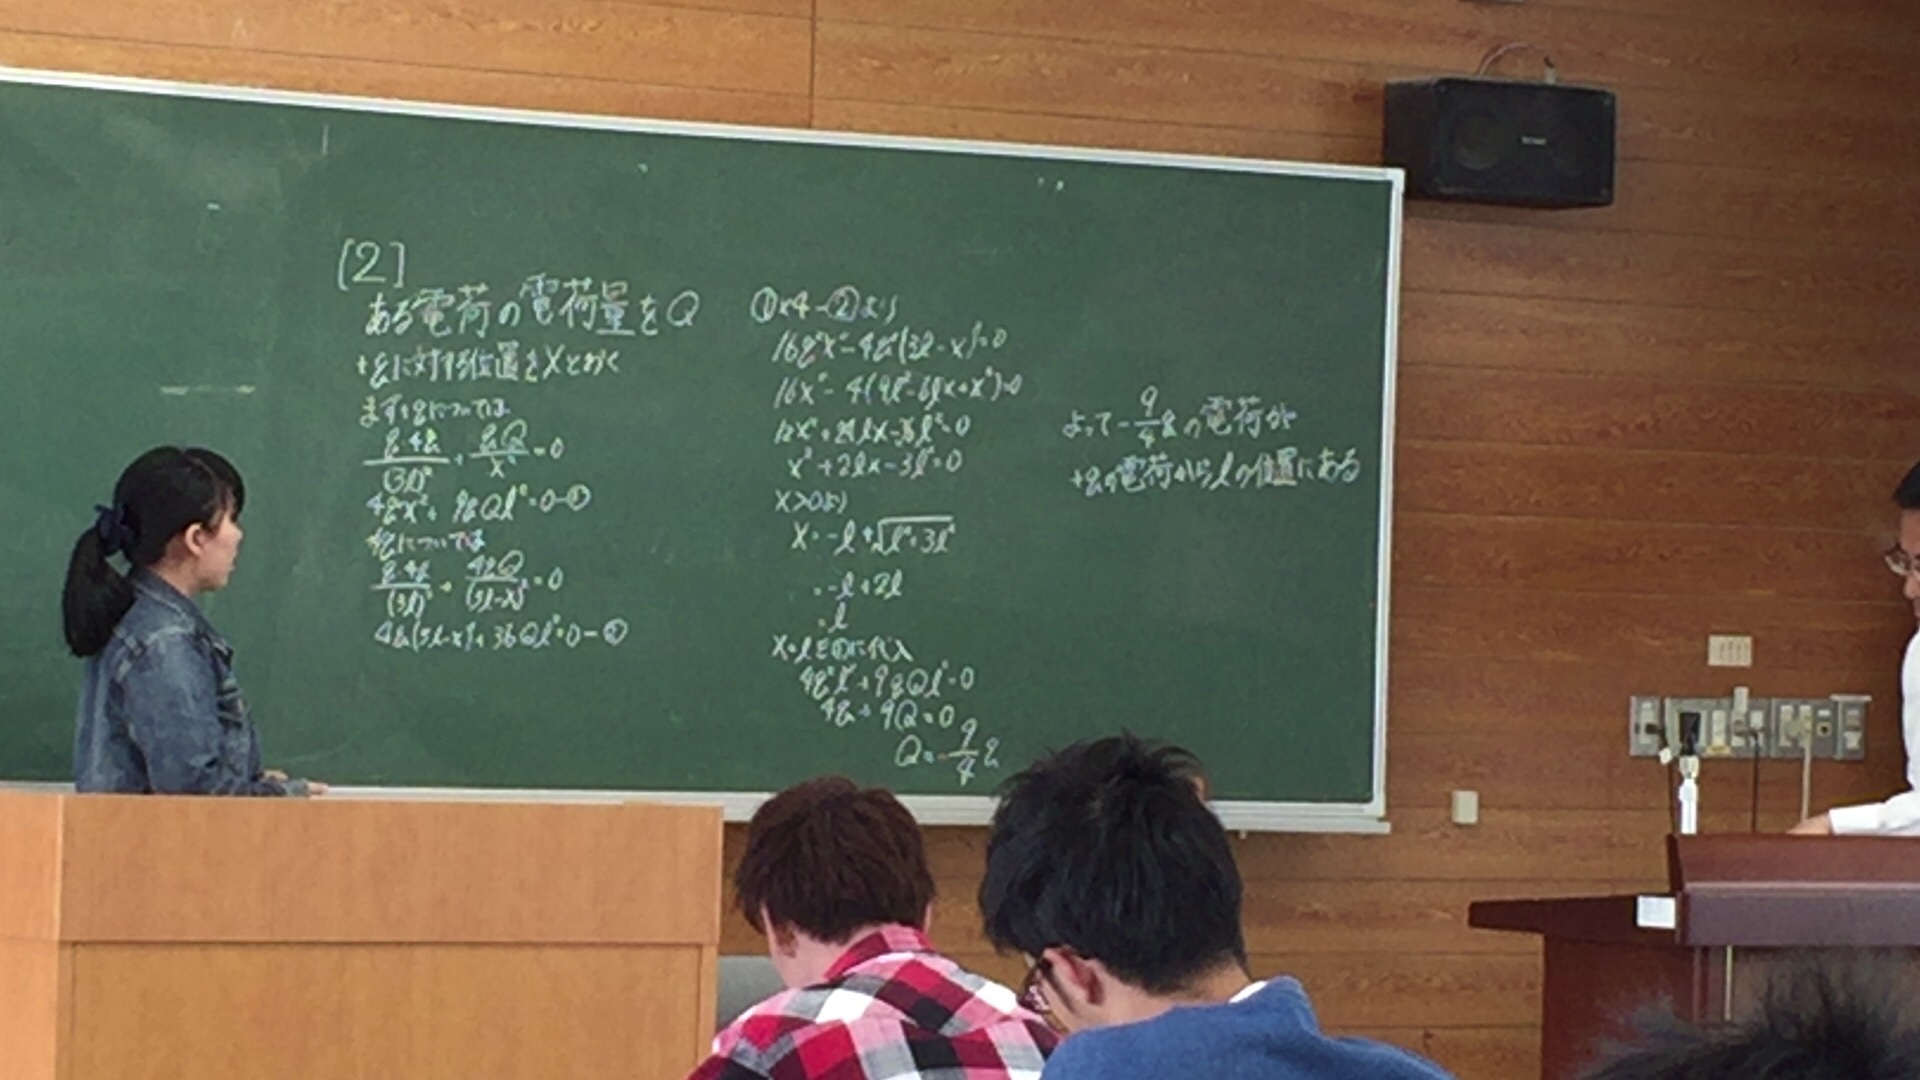 [2]
ある電荷の電荷量をQ
+qに対する位置をxとおく
まず+qについては
q·4q/(3l)² + qQ/x² = 0
4q²x² + 9qQl² = 0 - ①
4qについては
q·4q/(3l)² + 4qQ/(3l-x)² = 0
4q(3l-x)² + 36Ql² = 0 - ②
①×4-②より
16q²x² - 4q²(3l-x)² = 0
16x² - 4(9l²-6lx+x²) = 0
12x² + 24lx - 36l² = 0
x² + 2lx - 3l² = 0
x>0より
x = -l + √(l²+3l²)
= -l + 2l
= l
x=lを①に代入
4q²l² + 9qQl² = 0
4q + 9Q = 0
Q = -9/4 q
よって -9/4 qの電荷が
+qの電荷からlの位置にある